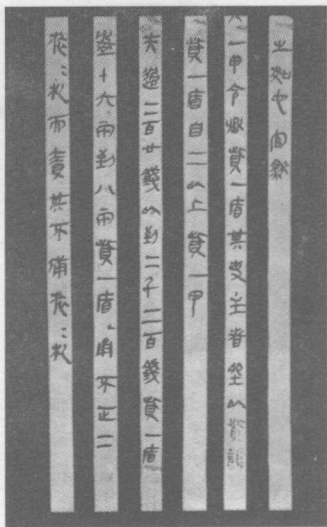 之如它官然
一甲令丞貲一盾其吏主者坐以貲誶
貲一盾自二以上貲一甲
夫過二百廿錢以到二千二百錢貲一盾
盈十六兩到八兩貲一盾甬不正二
旅=札而責其不備旅=札